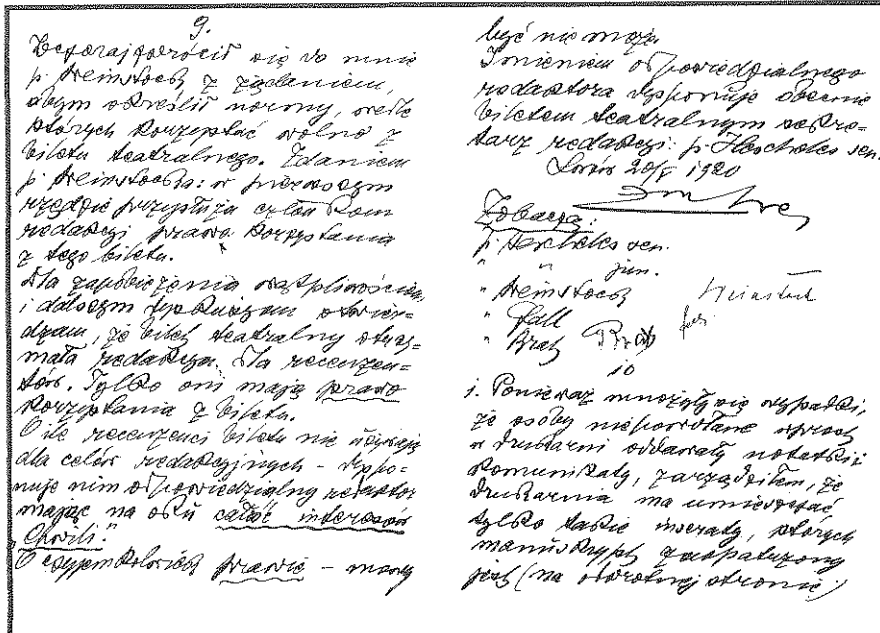 9.
Wczoraj zwrócił się do mnie
p. Weinstock z żądaniem,
abym określił normy, wedle
których korzystać wolno z
biletu teatralnego. Zdaniem
p. Weinstocka: w pierwszym
rzędzie przysługuje członkom
redakcji prawo korzystania
z tego biletu.
Dla zapobieżenia wątpliwościom
i dalszym dyskusjom stwier-
dzam, że bilet teatralny otrzy-
mała redakcja dla recenzen-
tów. Tylko oni mają prawo
korzystania z biletu.
O ile recenzenci biletu nie użyją
dla celów redakcyjnych - dyspo-
nuje nim odpowiedzialny redaktor
mając na oku całość interesów
"Chwili."
O czyjemkolwiek prawie - mowy
być nie może.
Imieniem odpowiedzialnego
redaktora dysponuje obecnie
biletem teatralnym sekre-
tarz redakcji: p. Hescheles sen.
Lwów 20/V 1920
Zobaczą:
p. Hescheles sen.
" " jun.
" Weinstock Weinstock
" Fall
" Brat Brat
10
1. Ponieważ mnożyły się wypadki,
że osoby niepowołane wprost
w drukarni oddawały notatki i
komunikaty, zarządziłem, że
drukarnia ma umieszczać
tylko takie inseraty, których
manuskrypt zaopatrzony
jest (na odwrotnej stronie)